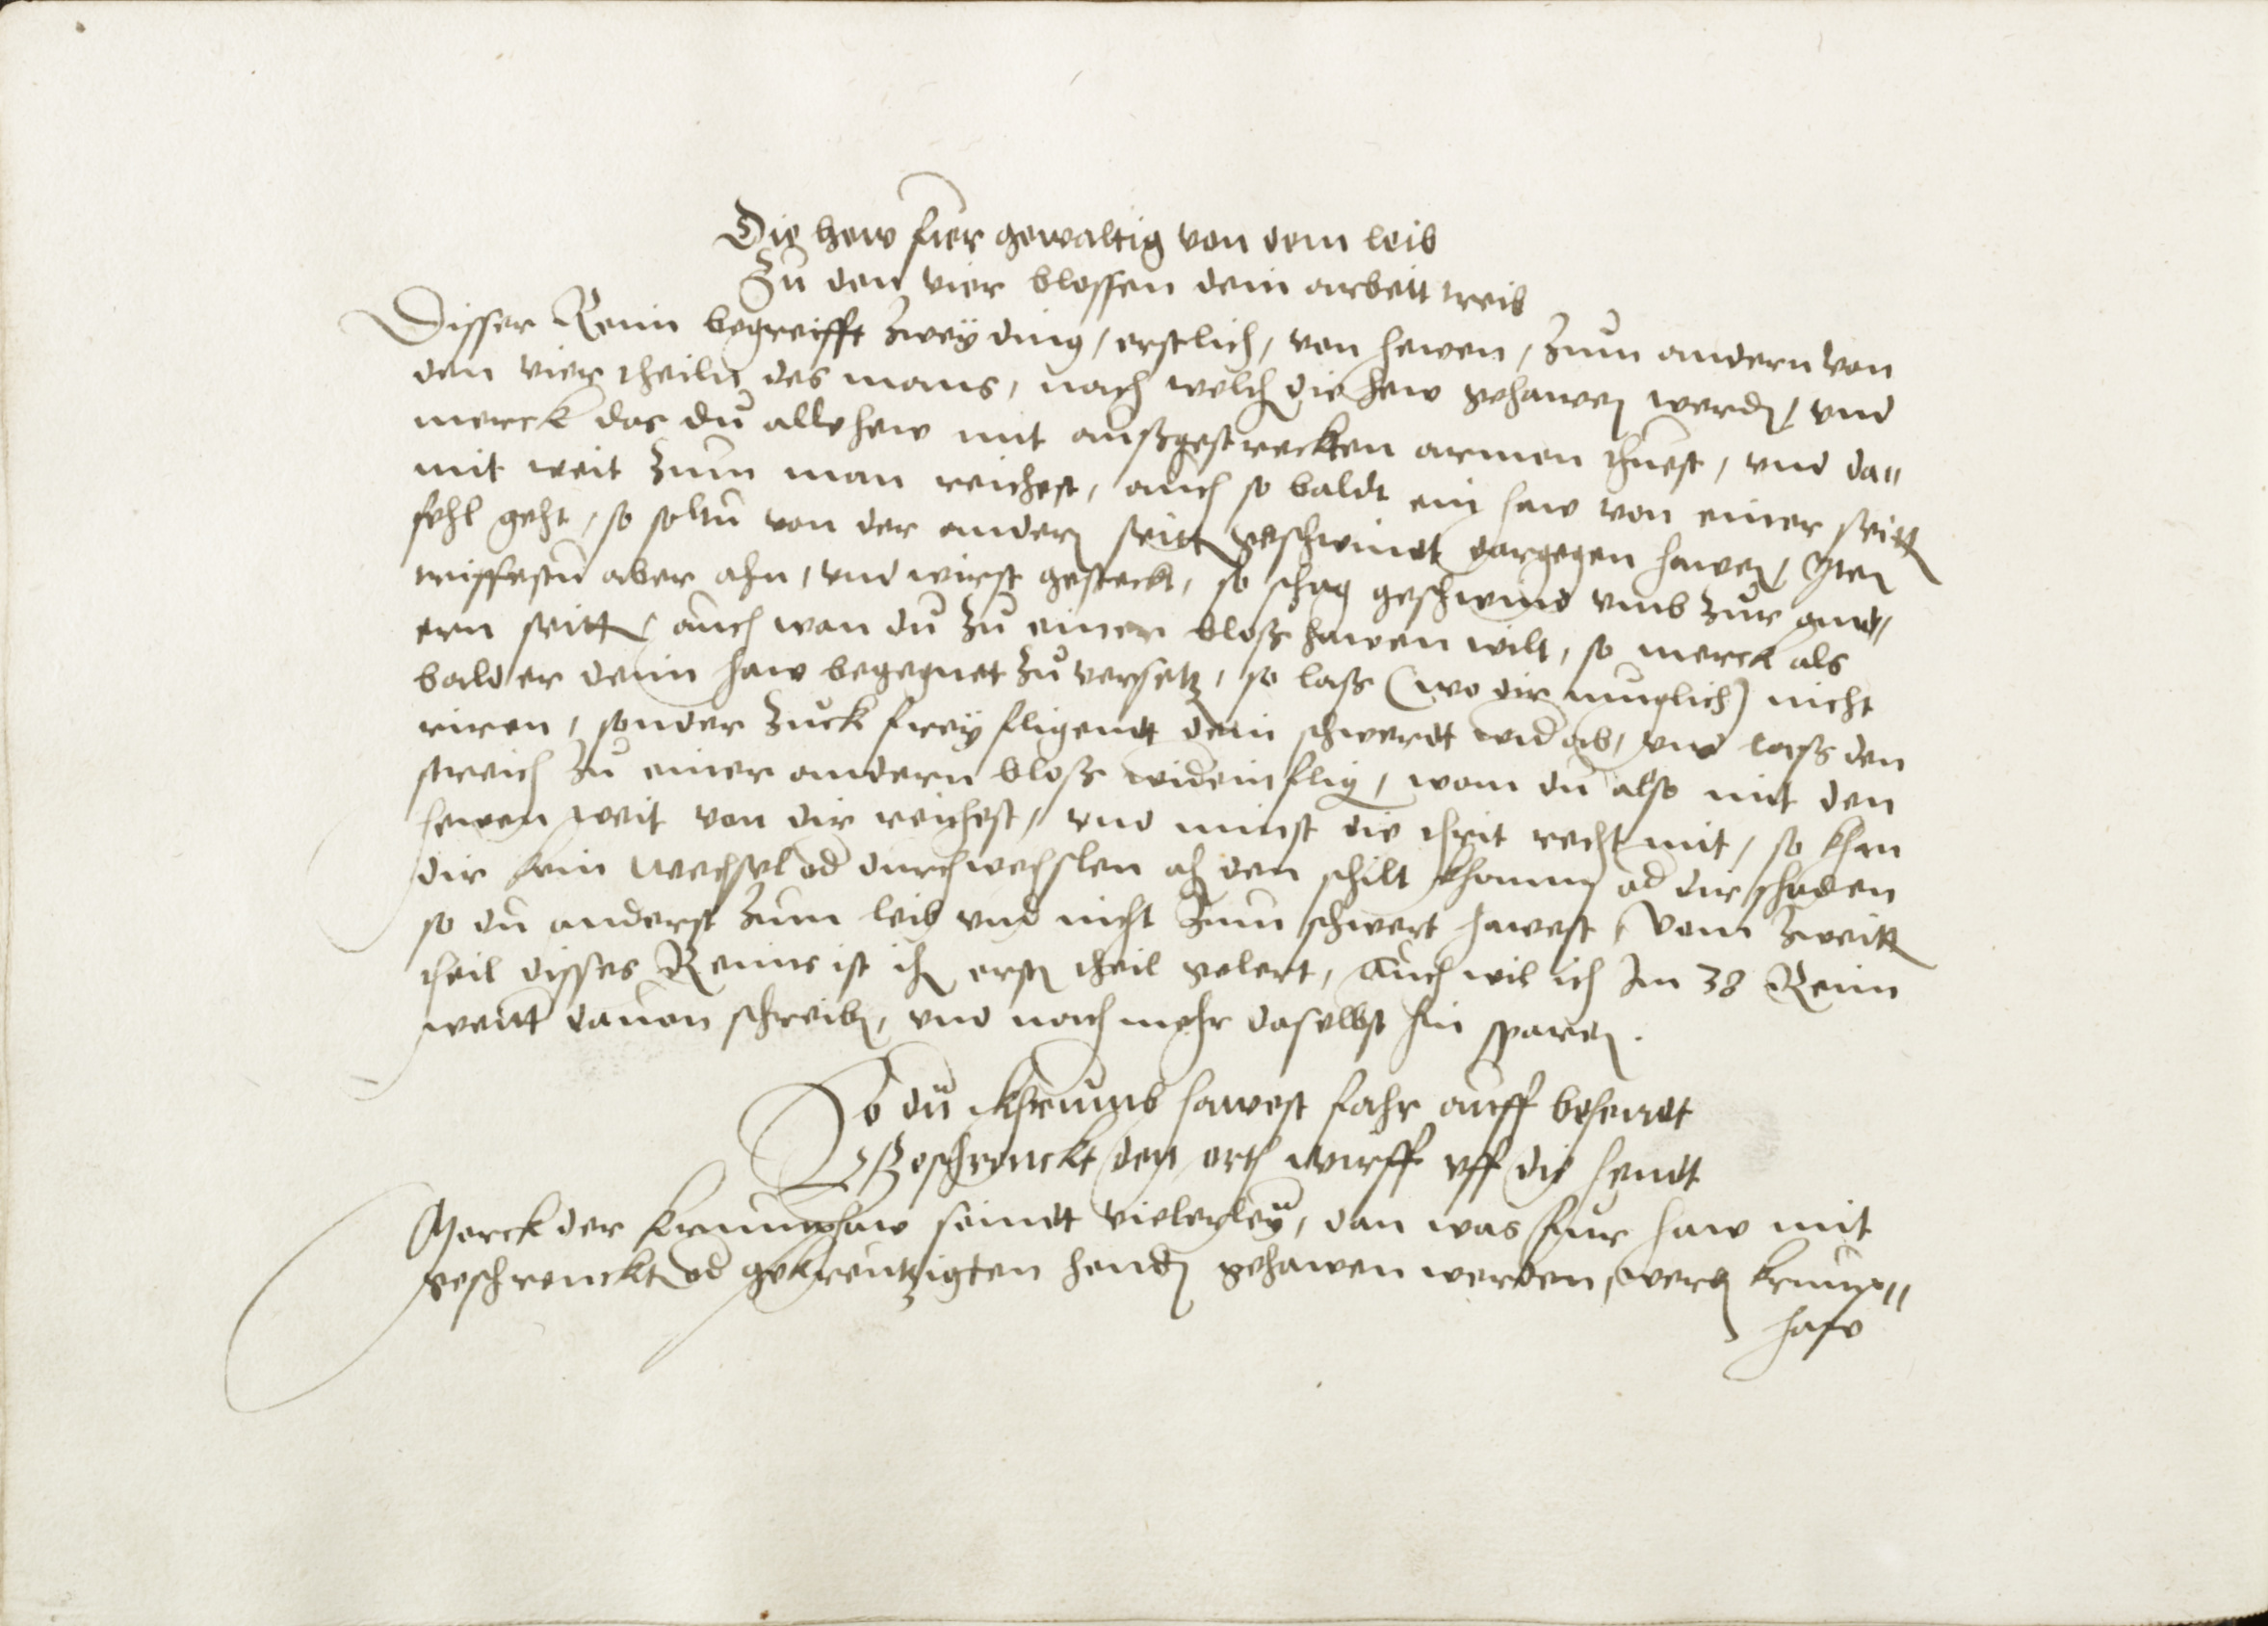 Die hew fier gewaltig von dem leib
Zu den vier blossen dein arbeit treib
Disser Reim begreifft zwey ding, erstlich, von hewen, zum andern von
den vier theiln des mans, nach welch die hew gehawen werden, vnd
merck das du alle hew mit außgestreckten armen thuest, vnd da„
mit weit zum man reichest, auch so baldt ein haw von einer seitt
fehl geht, so soltu von der andern seitt geschwindt dargegen hawen, Item
triffestu aber ahn, vnd wirst gesteckt, so schag geschwind vmb zur and„
ern seitt, auch wan du zu einer bloß hawen wilt, so merck als
bald er deim haw begegnet zu versetzen, so laß (wo dir muglich) nicht
riren, sonder zuck frey fligendt dein schwerdt wid ab, vnd laß den
streich zu einer andern bloß wid einflig, wan du also mit den
hewen weit von dir reichest, vnd nimst die thrit recht mit, so khan
dir kein wechsel od durchwechslen ahn den schilt khomen od dir schaden
so du anderst zum leib vnd nicht zum schwert hawest, vom zweitt
theil disses Reims ist im ersten theil gelert, auch wil ich Im 38 Reim
weitt dauon schreiben, vnd noch mehr daselbst hin sparen.
So du khrumb hawest fahr auff behendt
Geschrenckt den orth wirff vff die hendt
Merck der krumphaw seindt vielerley, dan was fur haw mit
geschrenckt od gekreutzigten henden gehawen werden, werden krump„
haw